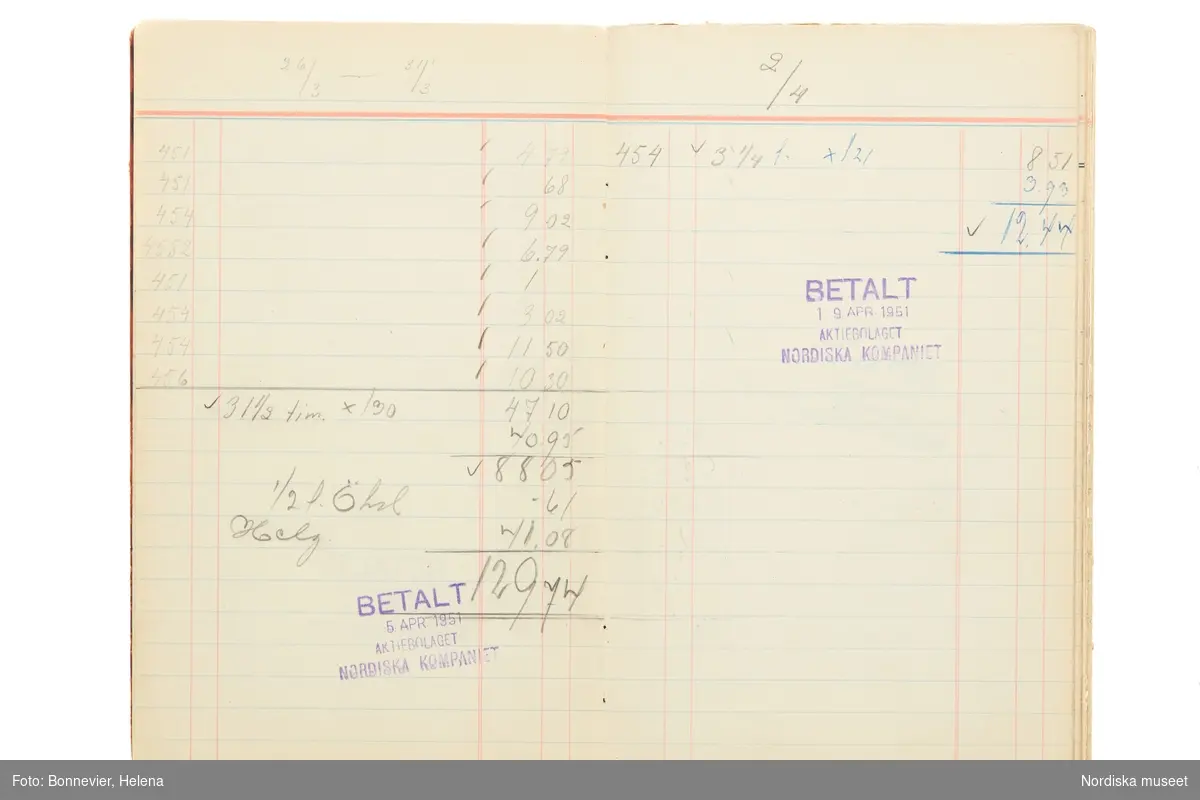 26/3 — 31/3
451 4 79
451 68
454 9 02
4652 6.79
451 1
454 3 02
454 11 50
456 10 30
✓ 31 1/2 tim. x /30 47 10
40.95
✓ 88 05
1/2 t. -61
Helg. 41.08
129 74
BETALT
5 APR 1951
AKTIEBOLAGET
NORDISKA KOMPANIET
2/4
454 ✓ 3 1/4 t. x /21 8 51
3.93
✓ 12.44
BETALT
19 APR 1951
AKTIEBOLAGET
NORDISKA KOMPANIET
Foto: Bonnevier, Helena
Nordiska museet